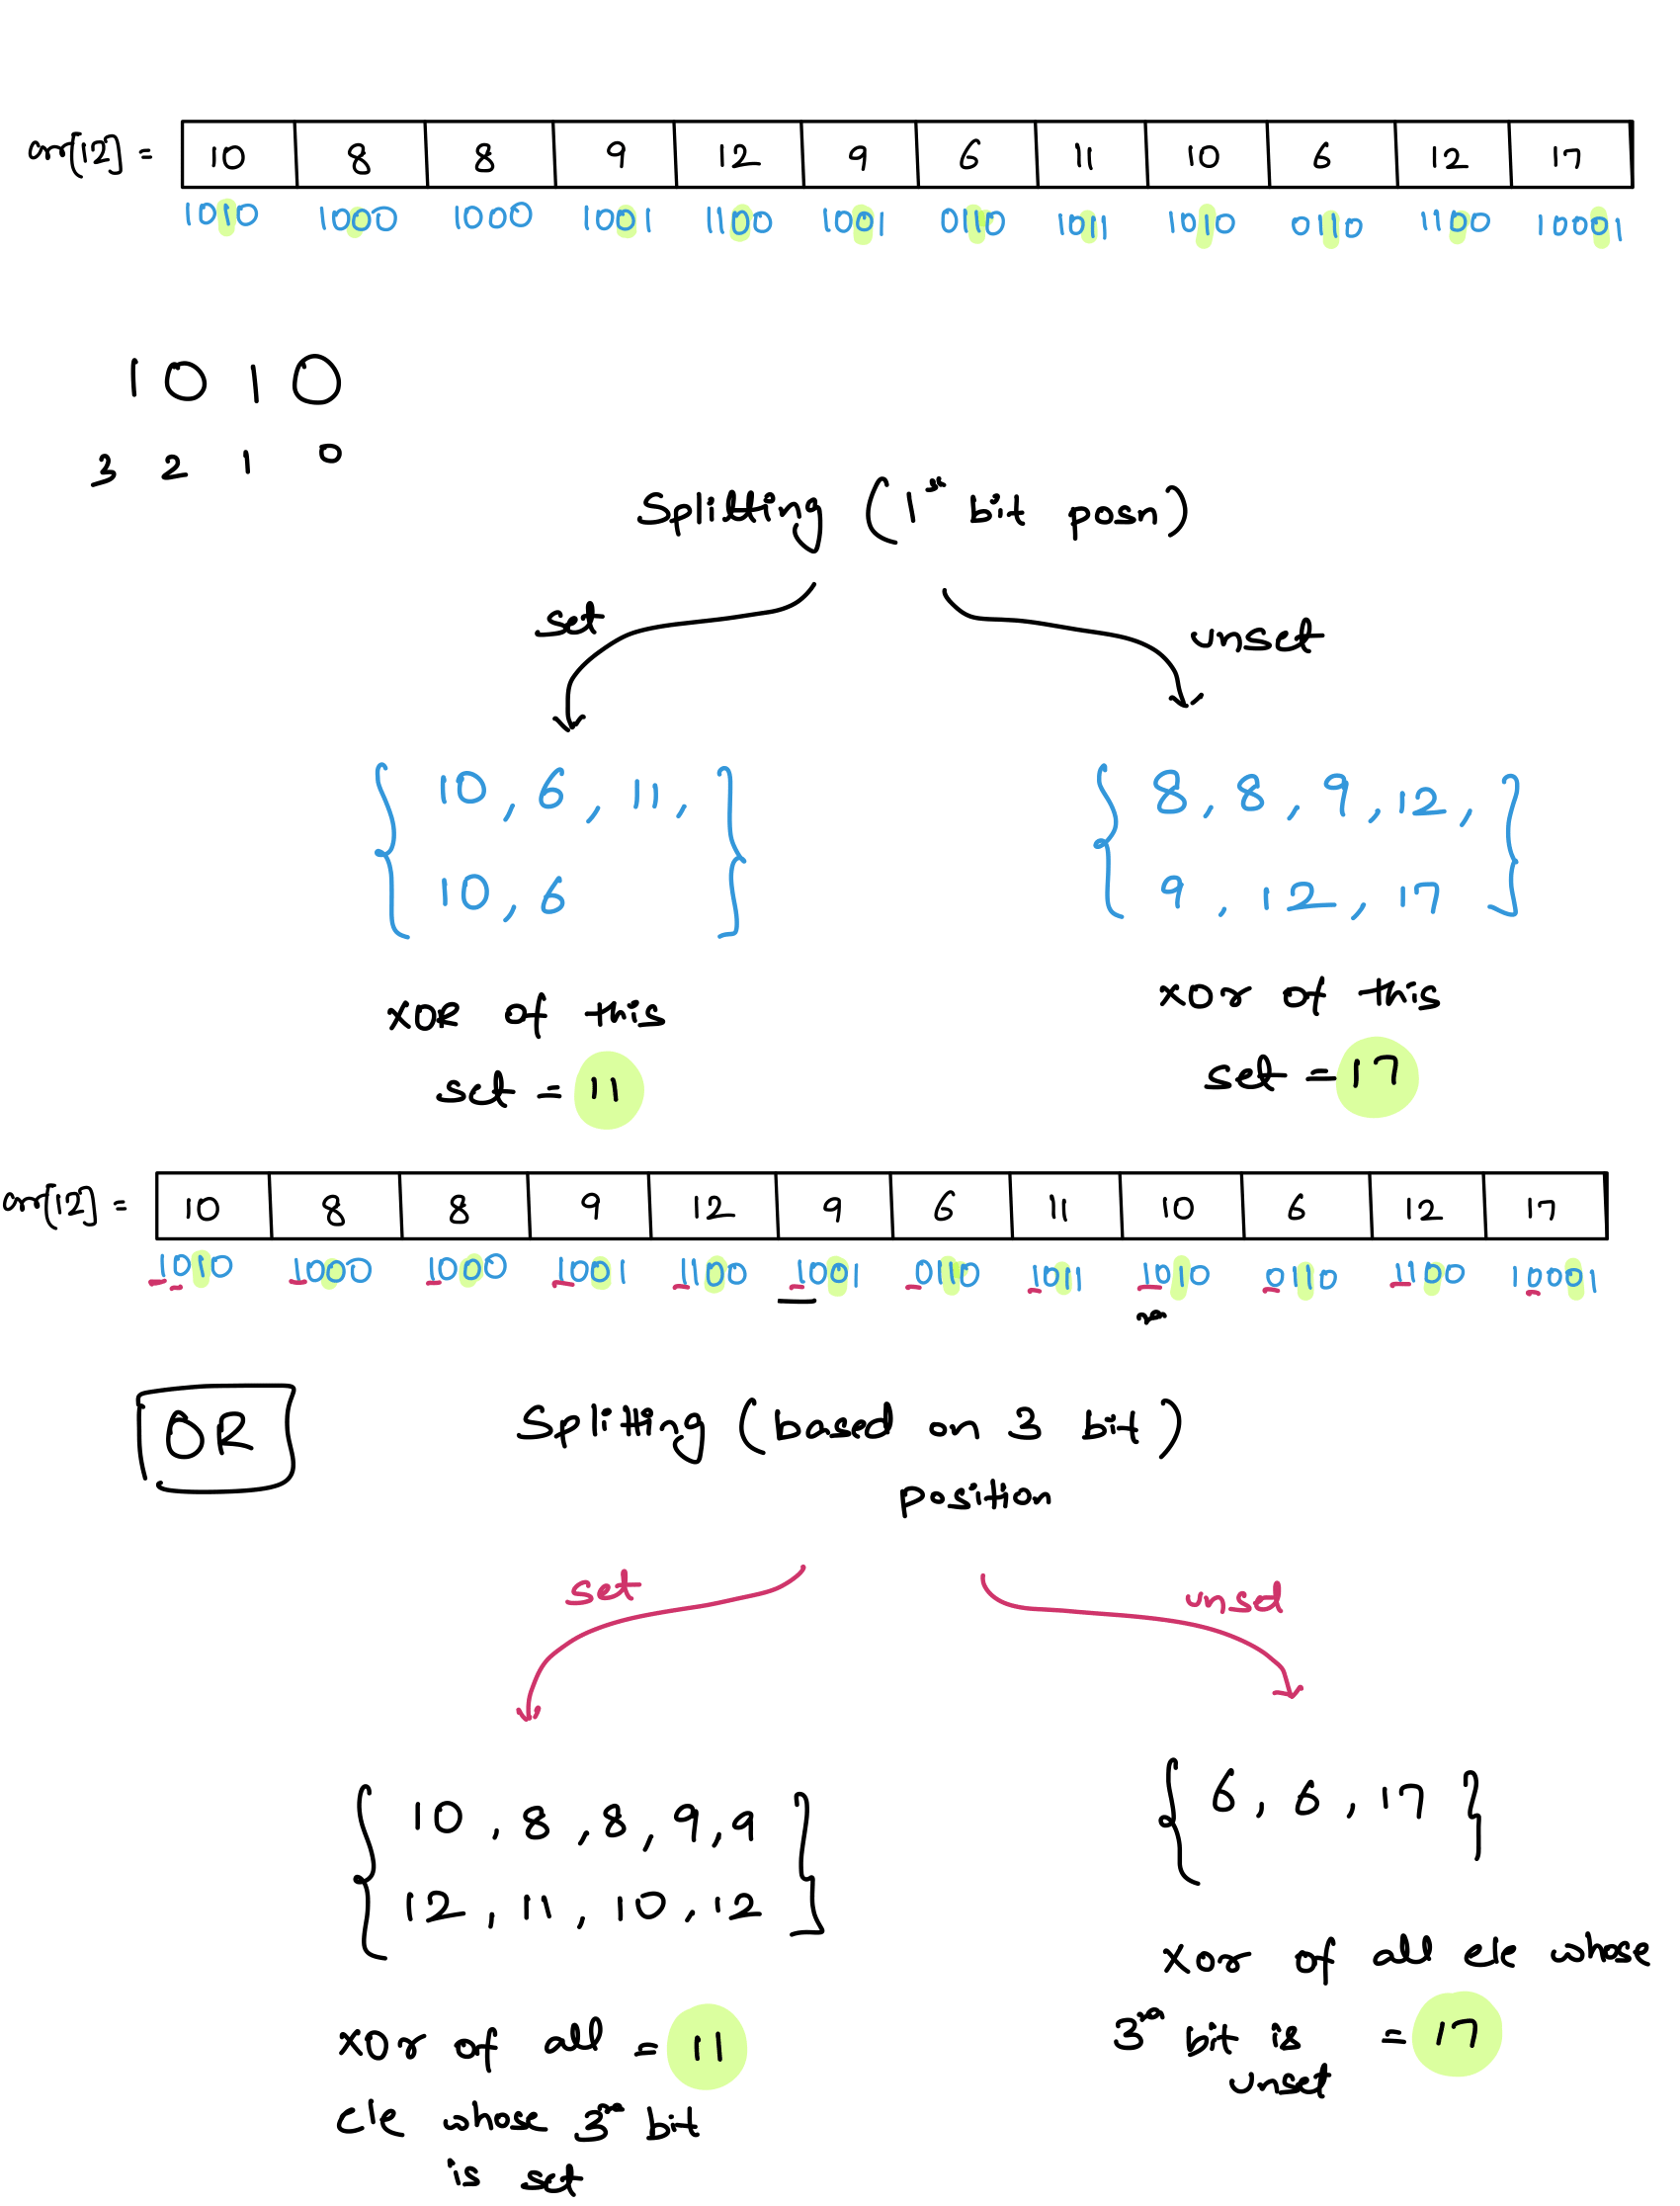 arr[12] = 10 8 8 9 12 9 6 11 10 6 12 17
1010 1000 1000 1001 1100 1001 0110 1011 1010 0110 1100 10001
1 0 1 0
3 2 1 0
Splitting (1st bit posn)
set unset
{ 10, 6, 11, } { 8, 8, 9, 12, }
10, 6 9, 12, 17
XOR of this xor of this
set = 11 set = 17
arr[12] = 10 8 8 9 12 9 6 11 10 6 12 17
1010 1000 1000 1001 1100 1001 0110 1011 1010 0110 1100 10001
OR Splitting (based on 3 bit)
position
set unset
{ 10, 8, 8, 9, 9 } { 6, 6, 17 }
12, 11, 10, 12
xor of all ele whose
3rd bit is = 17
unset
xor of all = 11
ele whose 3rd bit
is set